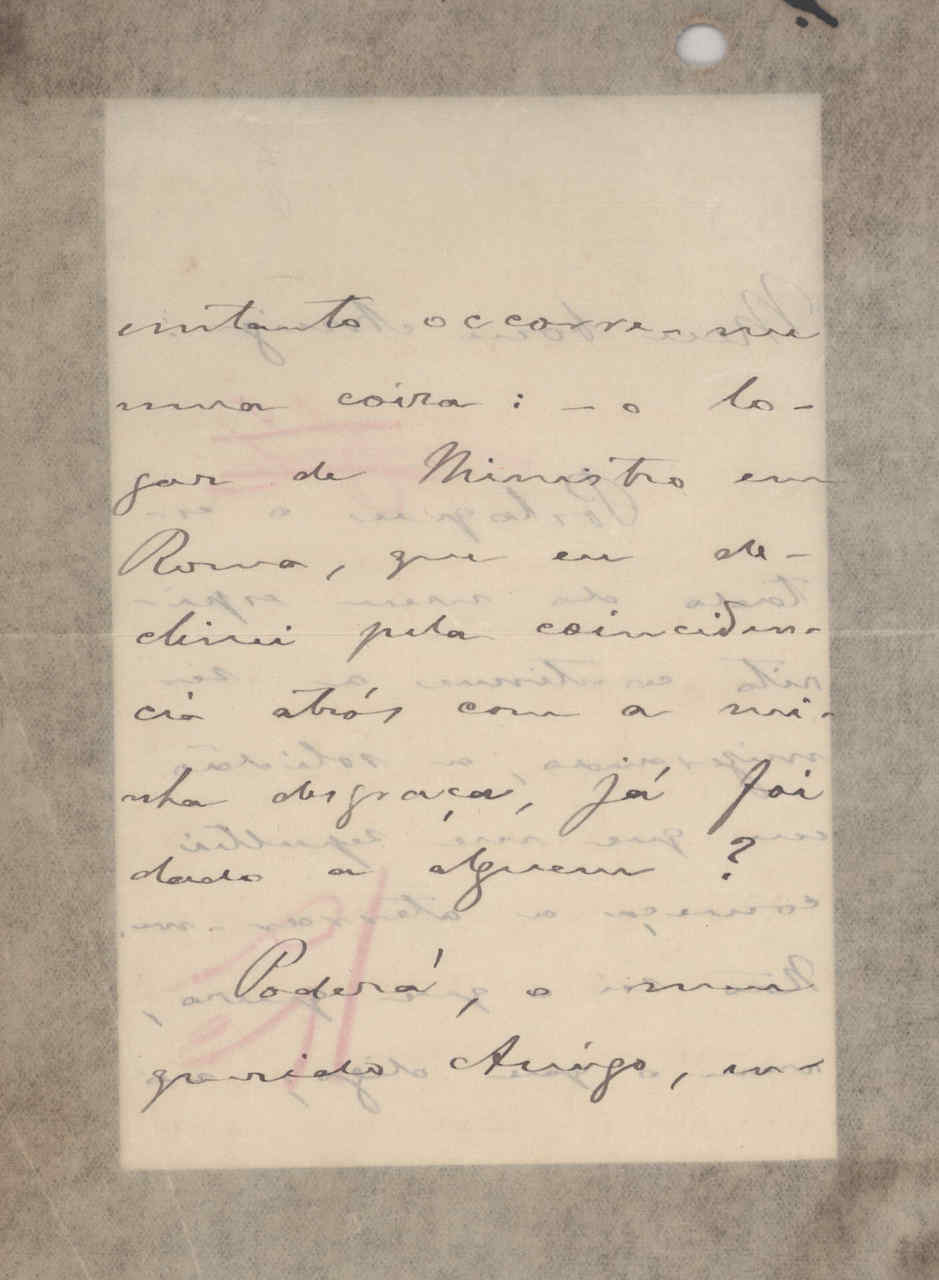 emtanto occorre-me
uma coisa: - o lo-
gar de Ministro em
Roma, que eu de-
clinei pela coinciden-
cia atrós com a mi-
nha desgraça, já foi
dado a alguem?
Poderá, o meu
querido Amigo, in-